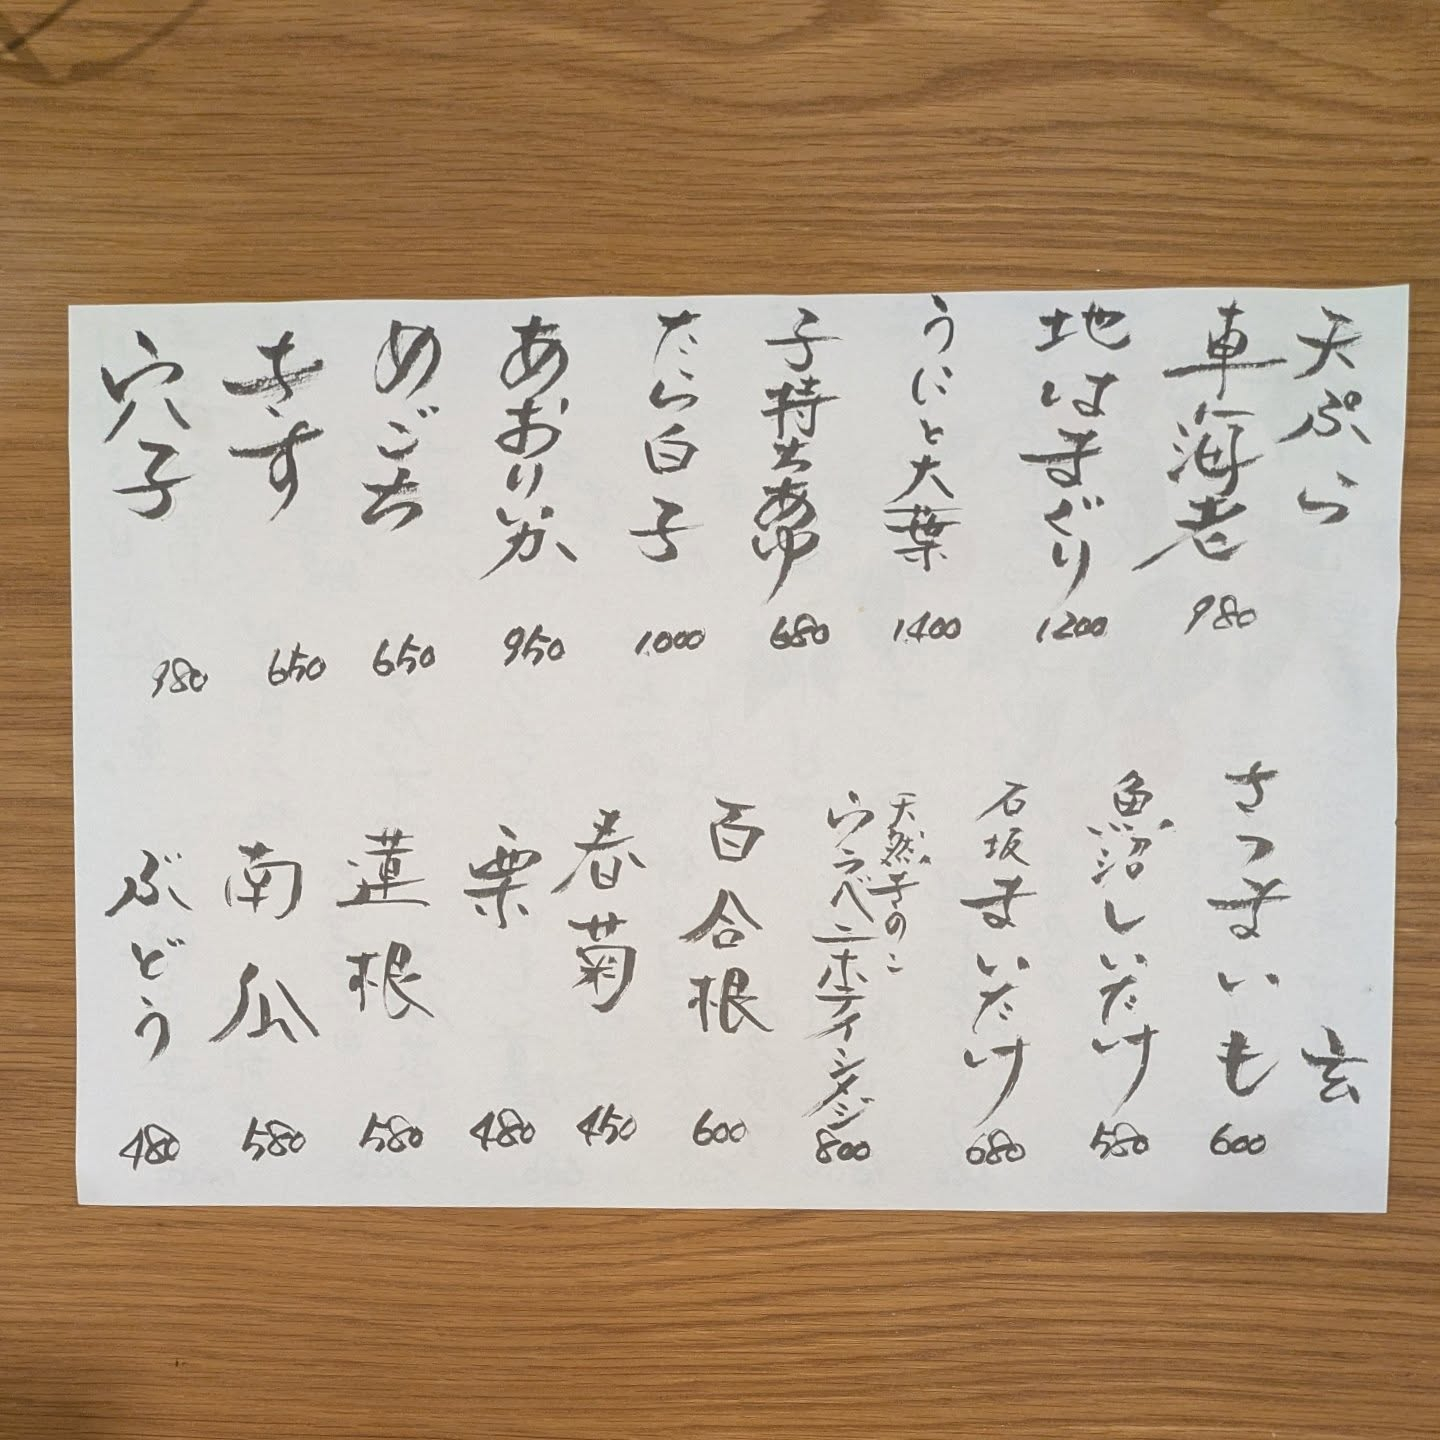 天ぷら
車海老 980
地はまぐり 1200
うにと大葉 1400
子持ちあゆ 680
たら白子 1000
あおりいか 950
めごち 650
きす 650
穴子 980
玄
さつまいも 600
魚沼しいたけ 580
石坂まいたけ 680
天然きのこ
ウラベニホテイシメジ 800
百合根 600
春菊 450
栗 480
蓮根 580
南瓜 580
ぶどう 480